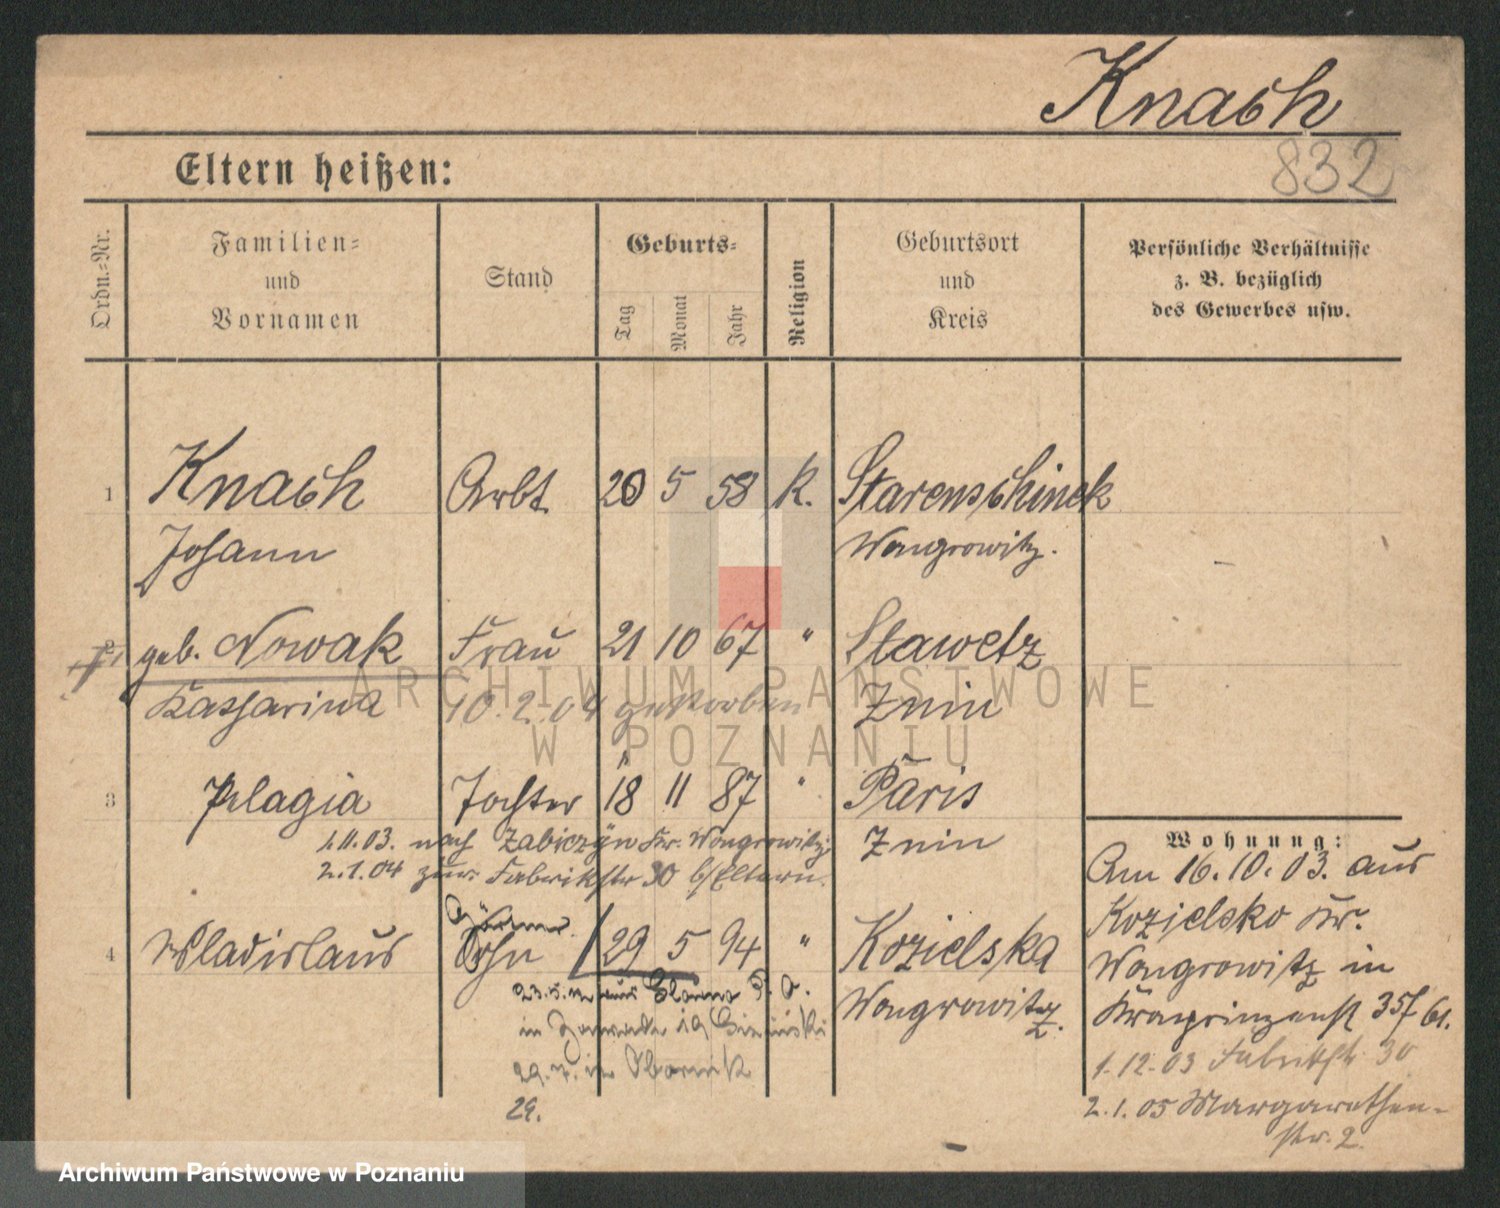 Knach
832
Eltern heißen:
Ordn.-Nr.
Familien- und Vornamen
Stand
Geburts-
Tag
Monat
Jahr
Religion
Geburtsort und Kreis
Persönliche Verhältnisse z. B. bezüglich des Gewerbes usw.
1 Knach Arbt. 20 5 58 K. Starenschinek
Johann Wongrowitz.
2 geb. Nowak Frau 21 10 67 " Slawetz
Katharina 10.2.04 gestorben Znin
3 Pelagia Tochter 18 11 87 " Paris
1.11.03. nach Zabiczyn Kr. Wongrowitz; Znin
2.1.04 zur. Fabrikstr 30 b/Eltern.
4 Wladislaus Sohn 29 5 94 " Kozielska
Wongrowitz.
23.5. aus
in
29.7. in Obornik
29.
Wohnung:
Am 16.10.03. aus
Kozielsko Kr.
Wongrowitz in
Kronprinzenst 35
1.12.03 Fabrikstr. 30
2.1.05 Margarethen-
str. 2.
ARCHIWUM PAŃSTWOWE
W POZNANIU
Archiwum Państwowe w Poznaniu